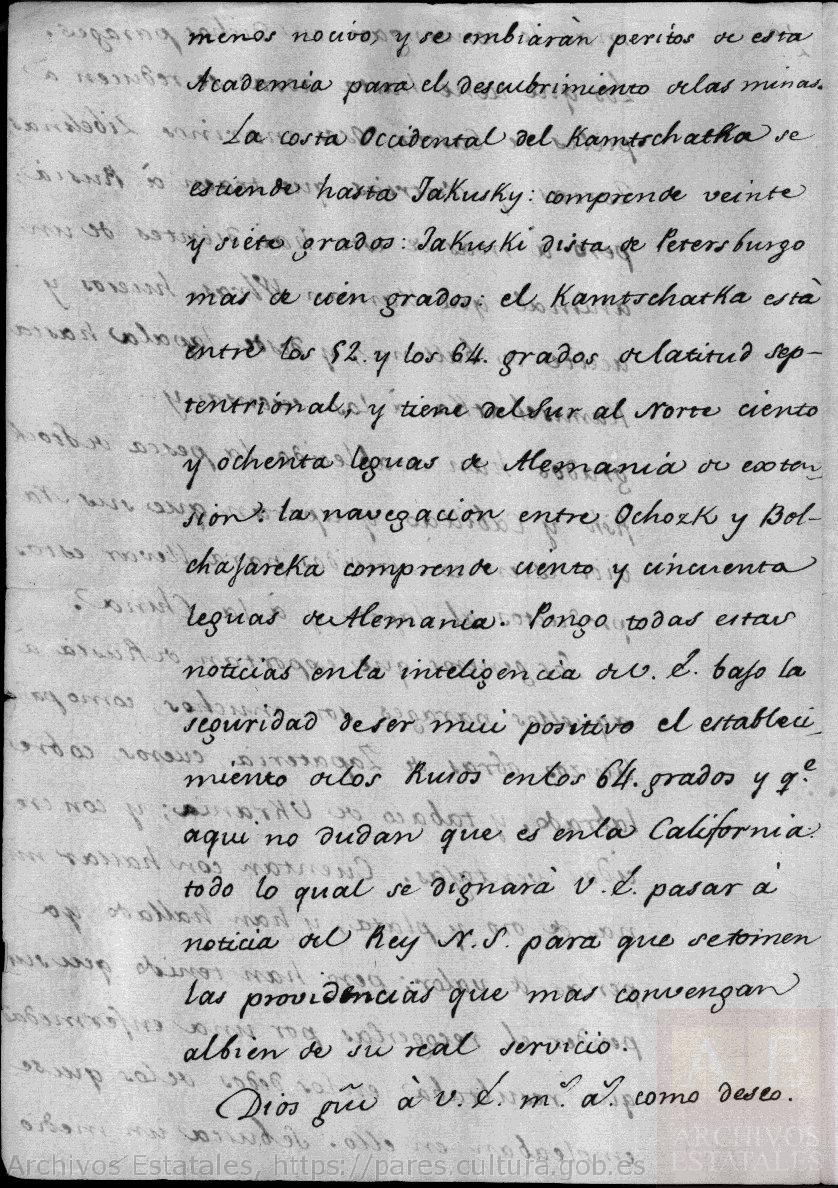 menos nocivo, y se embiaràn peritos de esta
Academia para el descubrimiento delas minas.
La costa Occidental del Kamtschatka se
estiende hasta Jakusky: comprende veinte
y siete grados: Jakuski dista de Petersburgo
mas de cien grados: el Kamtschatka està
entre los 52. y los 64. grados de latitud sep-
tentrional, y tiene del Sur al Norte ciento
y ochenta leguas de Alemania de exten-
sion: la navegacion entre Ochozk y Bol-
chajareka comprende ciento y cincuenta
leguas de Alemania. Pongo todas estas
noticias enla inteligencia de V. E. bajo la
seguridad de ser mui positivo el estableci-
miento delos Rusos enlos 64. grados y q.e
aqui no dudan que es enla California.
todo lo qual se dignarà V. E. pasar à
noticia del Rey N. S. para que se tomen
las providencias que mas convengan
albien de su real servicio.
Dios gũe à V. E. m.s a.s como deseo.
Archivos Estatales, https://pares.cultura.gob.es
AE
ARCHIVOS
ESTATALES